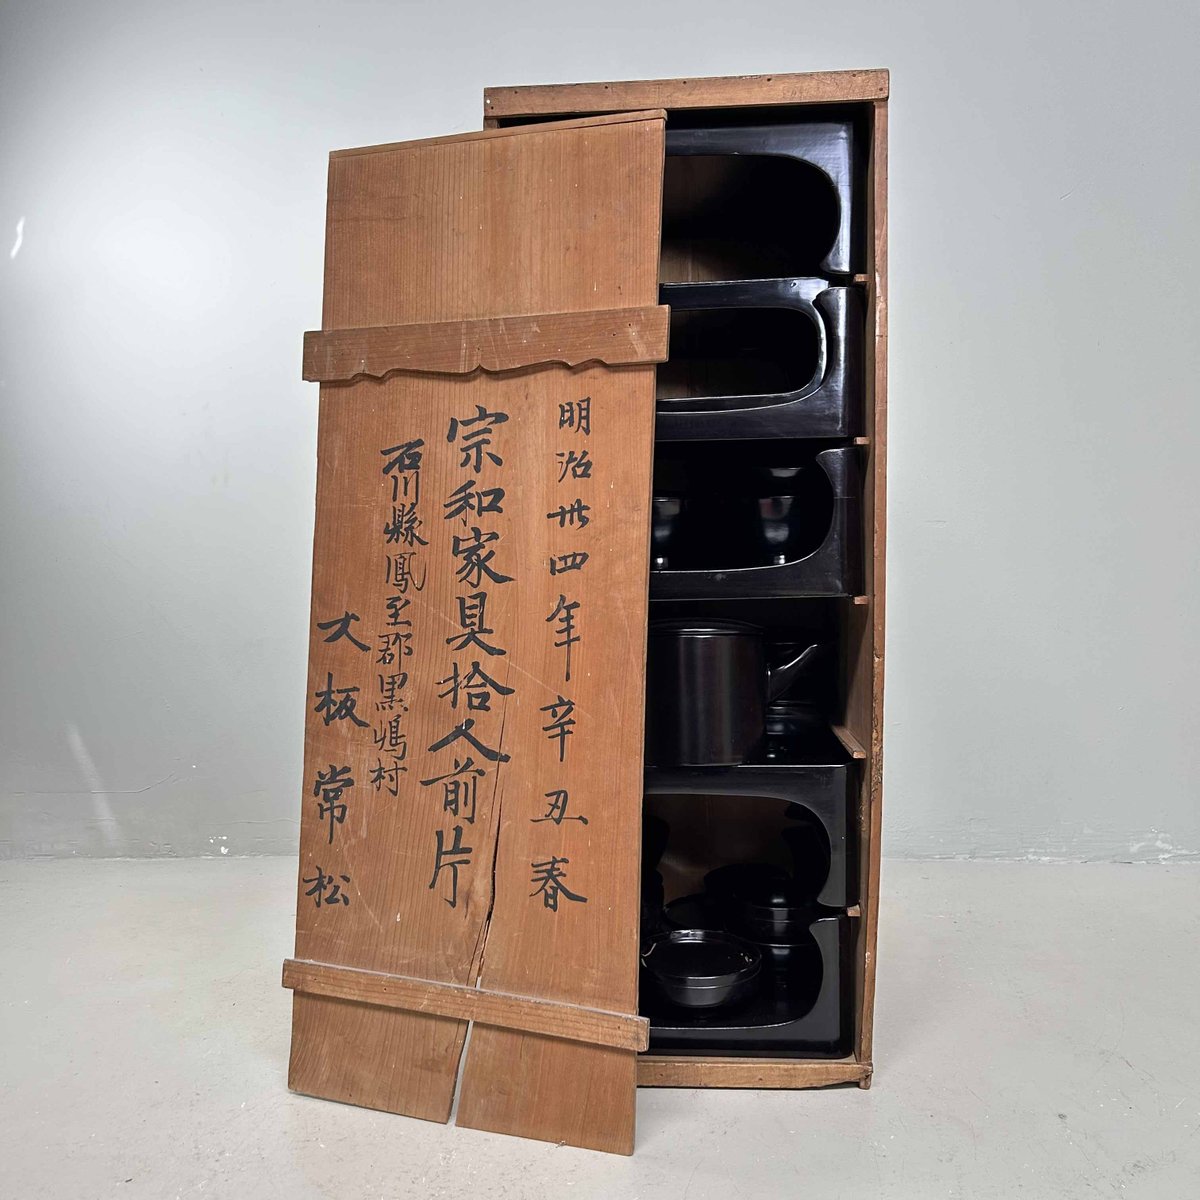 明治卅四年辛丑春
宗和家具拾人前片
石川縣鳳至郡黒嶋村
大板常松